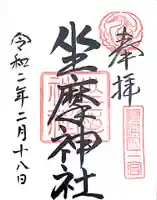 奉拝
坐摩神社
令和二年二月十八日